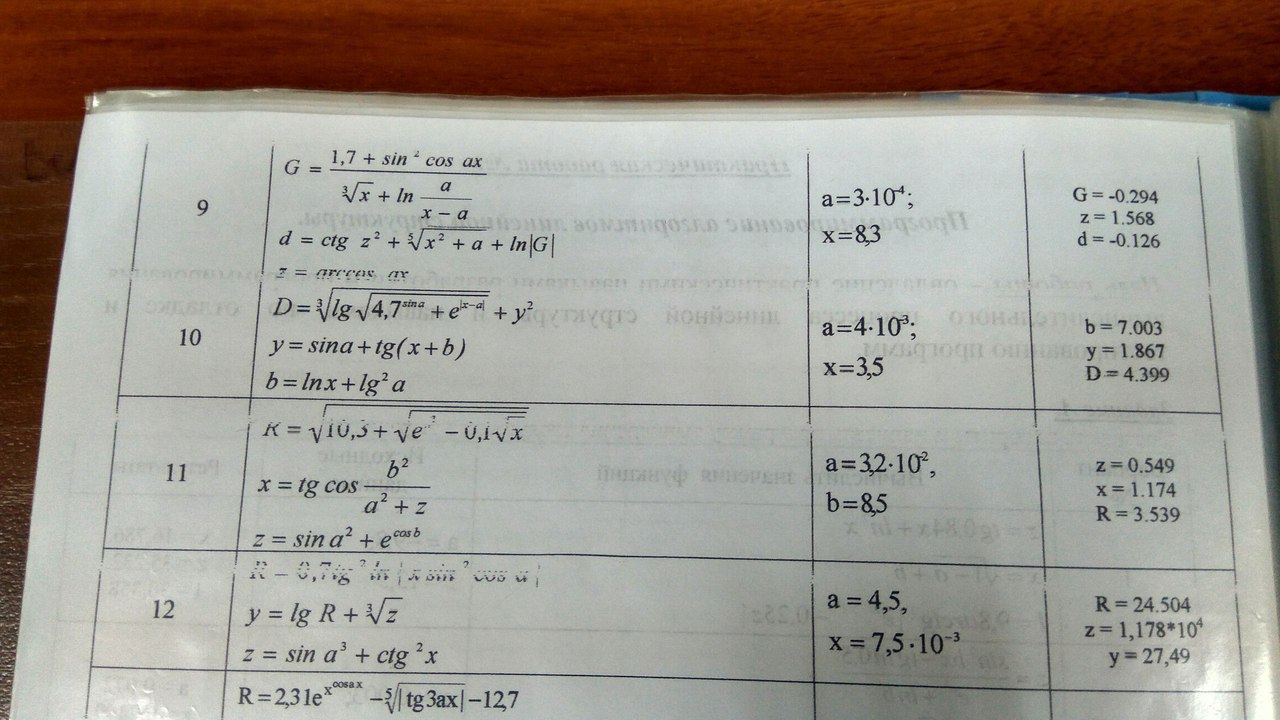 9
G = (1,7 + sin² cos ax) / (∛x + ln (a / (x − a)))
d = ctg z² + ∛(x² + a) + ln|G|
z = arccos ax
a=3·10⁻⁴;
x=8,3
G = -0.294
z = 1.568
d = -0.126
10
D = ∛(lg√(4,7^(sin a) + e^|x−a|)) + y²
y = sina + tg(x + b)
b = lnx + lg² a
a=4·10⁻³;
x=3,5
b = 7.003
y = 1.867
D = 4.399
11
x = tg cos (b² / (a² + z))
z = sin a² + e^(cos b)
a=3,2·10⁻²,
b=8,5
z = 0.549
x = 1.174
R = 3.539
12
y = lg R + ∛z
z = sin a³ + ctg ² x
a = 4,5,
x = 7,5·10⁻³
R = 24.504
z = 1,178*10⁴
y = 27,49
R=2,31e^(x^(cosax)) −⁵√|tg3ax| −12,7